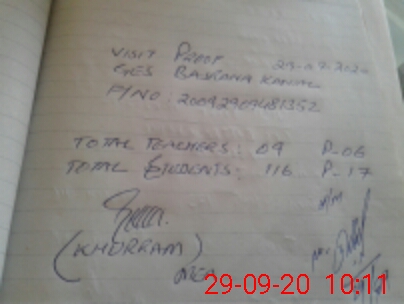 VISIT PROOF 29-09-2020
GES BASKANA KAMAL
P/NO: 20092909481352
TOTAL TEACHERS: 09 P-06
TOTAL STUDENTS: 116 P-17
(KHURRAM)
MEA
29-09-20 10:11